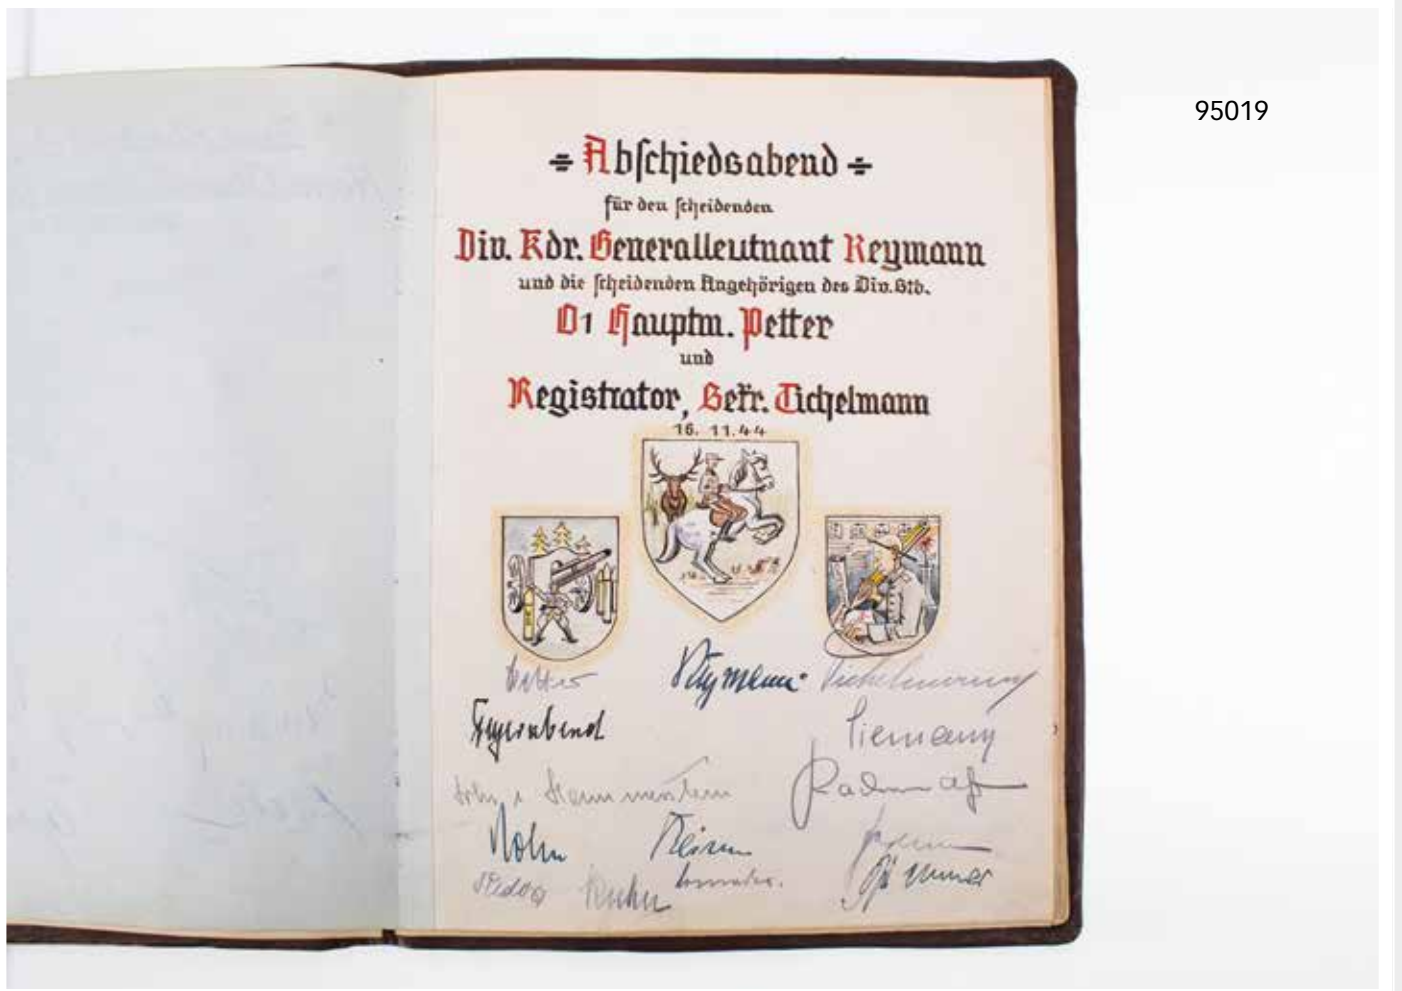 95019
÷ Abschiedsabend ÷
für den scheidenden
Div. Kdr. Generalleutnant Reymann
und die scheidenden Angehörigen des Div. Stb.
O1 Hauptm. Petter
und
Registrator, Gefr. Tichelmann
16. 11. 44
Petter Reymann Tichelmann
Feyerabend
Siemann
Hammerstein
Nohn
Kuhn